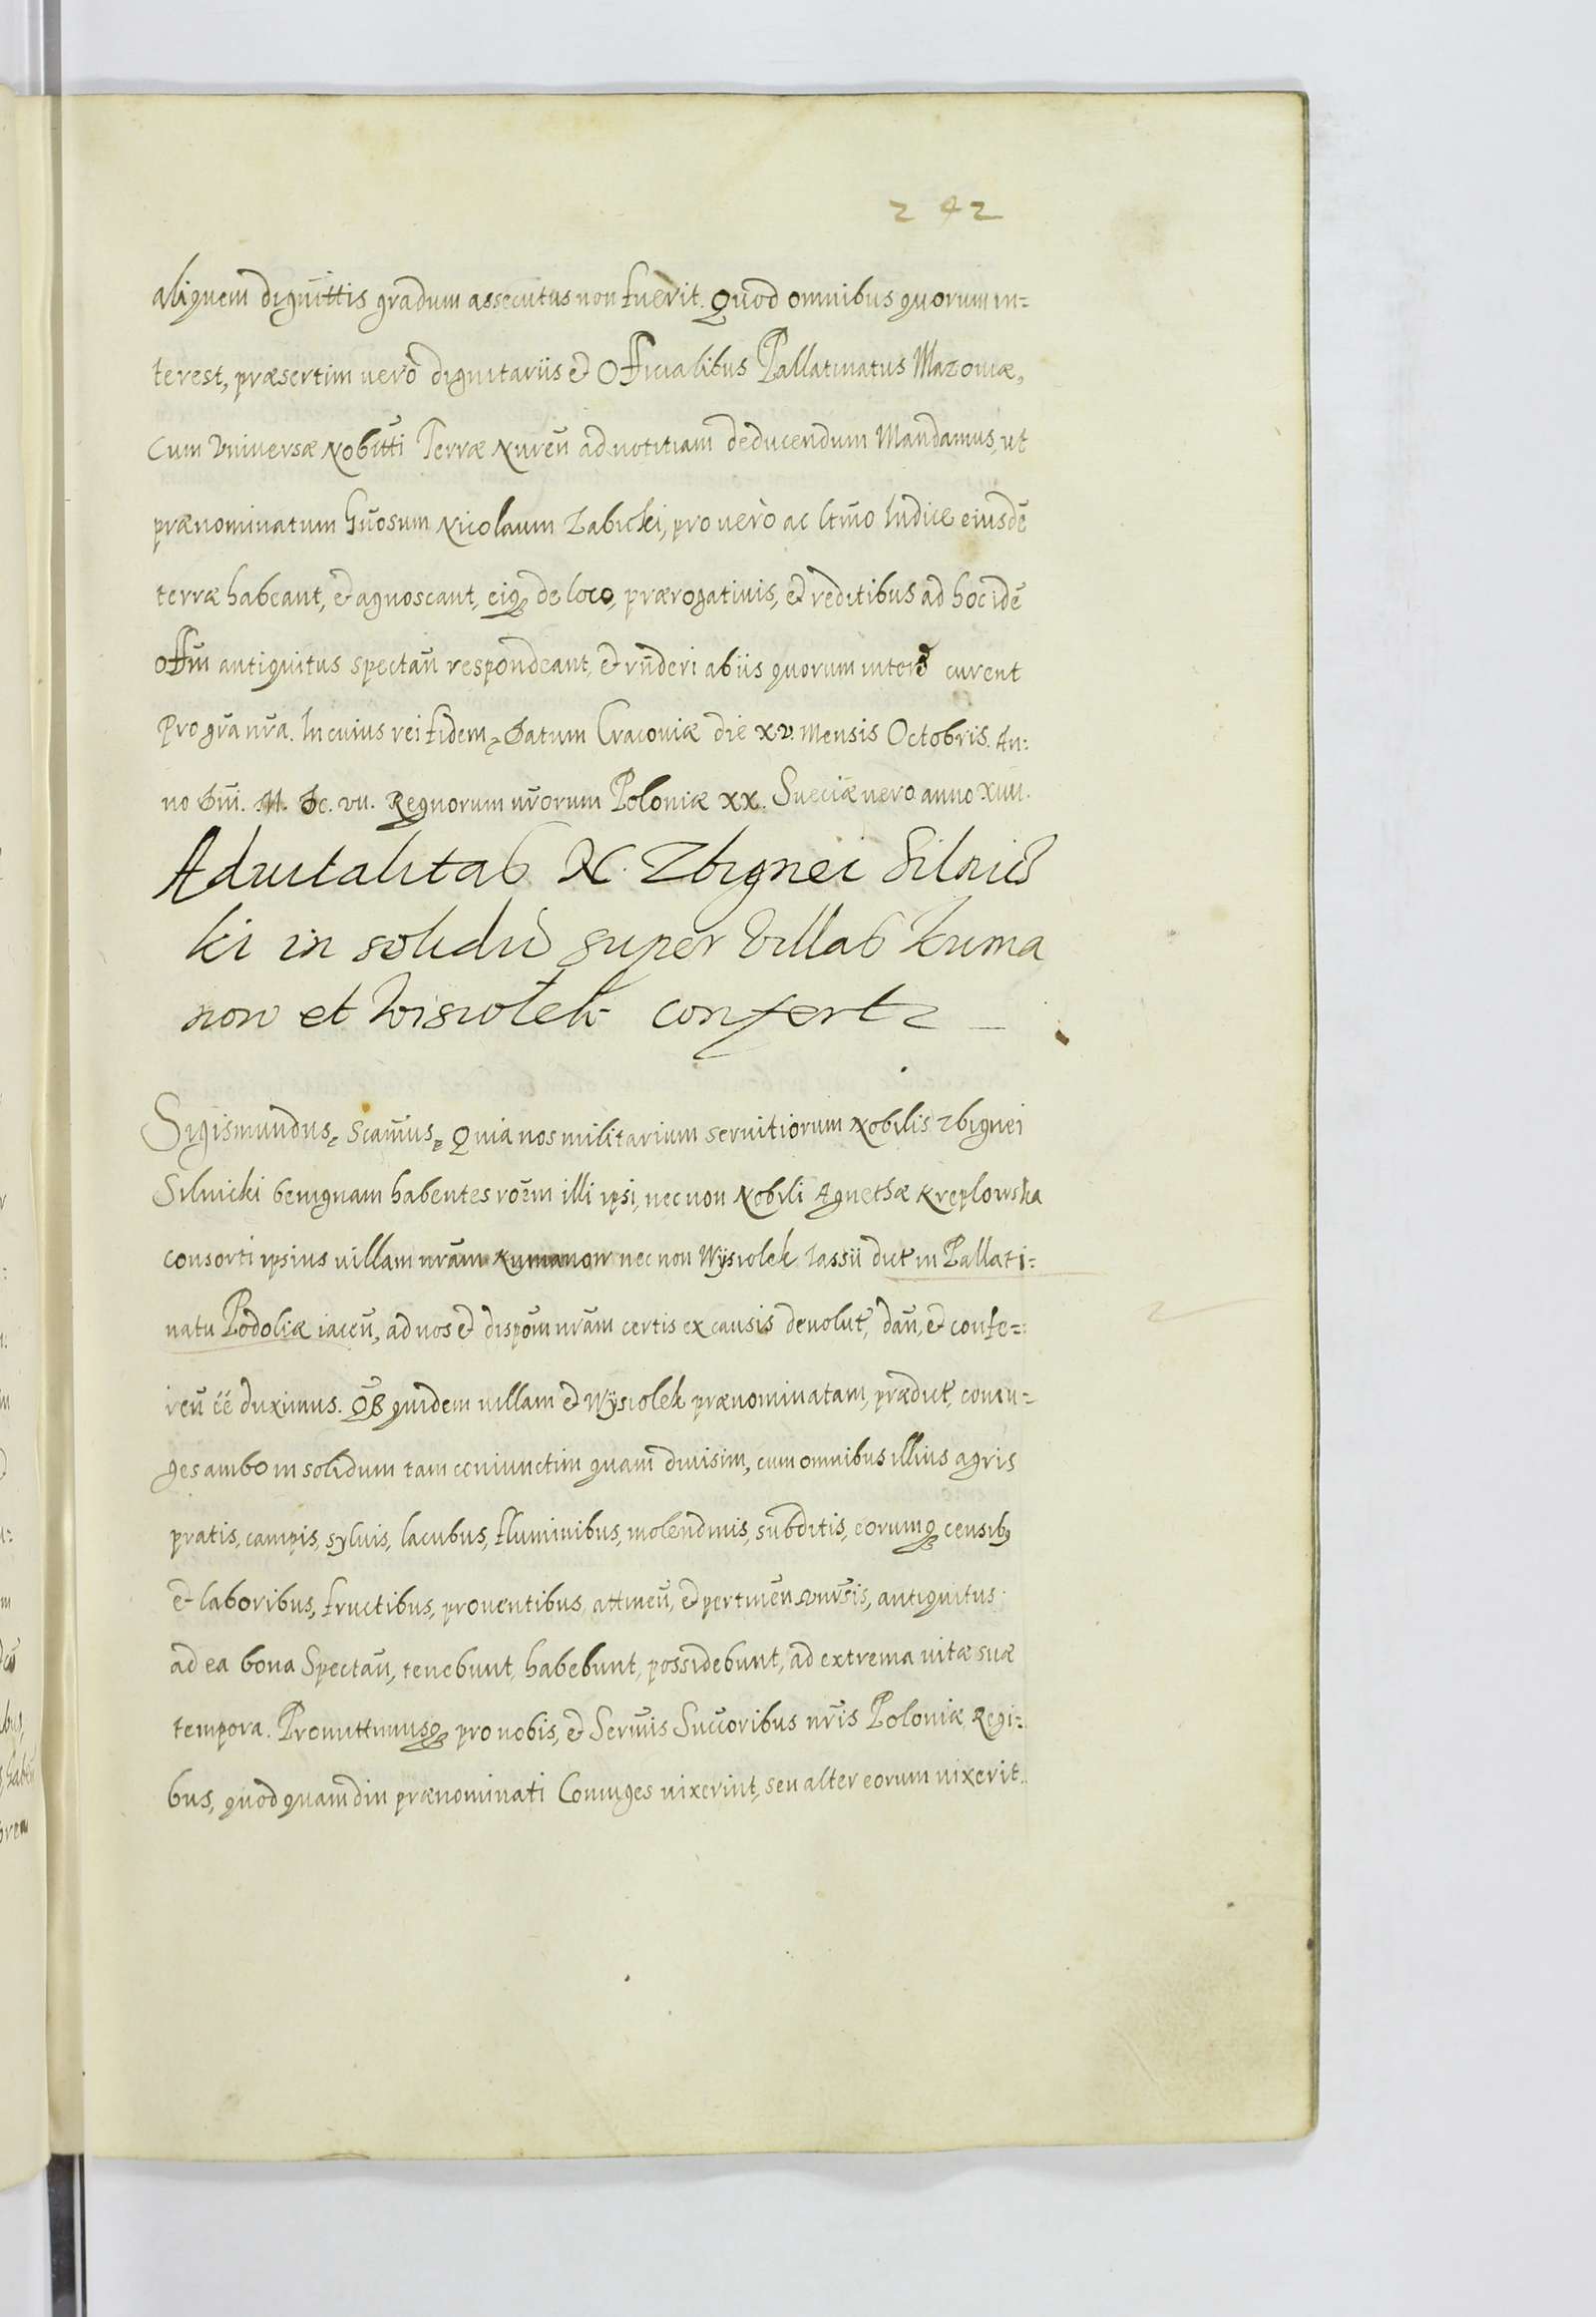 242
aliquem dignittis gradum assecutus non fuerit. Quod omnibus quorum in=
terest, præsertim vero dignitariis et Officialibus Pallatinatus Mazoviæ,
Cum Universæ Nobitti Terræ Nureñ ad notitiam deducendum Mandamus, ut
prænominatum Gn̄osum Nicolaum Zabicki, pro vero ac ltm̄o Iudice eiusdē
terræ habeant, et agnoscant, eiq de loco, prærogativis, et reditibus ad hoc idē
offm̄ antiquitus spectañ respondeant, et rn̄deri ab iis quorum interẽ curent
pro grā nr̄a. In cuius rei fidem, Datum Cracoviæ die xv. Mensis Octobris. An:
no Dn̄i. M. Dc. vii. Regnorum nr̄orum Poloniæ xx. Sueciæ vero anno XIIII.
Advitalitas N. Zbignei Silnic
ki in solidū super Villas Kuma
now et Wisiolek confertz
Sigismundus, Scamus, Quia nos militarium servitiorum Nobilis Zbignei
Silnicki benignam habentes rōem illi ipsi, nec non Nobili Agnethæ Kreplowska
consorti ipsius villam nr̄am Kumanow nec non Wÿsiolek Iassii dict in Pallati:
natu Podoliæ iaceñ, ad nos et dispōm nr̄am certis ex causis devolut, dañ, et confe=:
reñ ēē duximus. Qß quidem villam et Wÿsiolek prænominatam, prædict, coniu=
ges ambo in solidum tam coniunctim quam divisim, cum omnibus illius agris
pratis, campis, sylvis, lacubus, fluminibus, molendinis, subditis, eorumq censib9
et laboribus, fructibus, proventibus, attineñ, et pertineñ Vnīrsis, antiquitus
ad ea bona Spectañ, tenebunt, habebunt, possidebunt, ad extrema vitæ suæ
tempora. Promittimusq pro nobis, et Serm̄is Succoribus nr̄is Poloniæ Regi=
bus, quod quamdiu prænominati Coniuges vixerint, seu alter eorum vixerit.